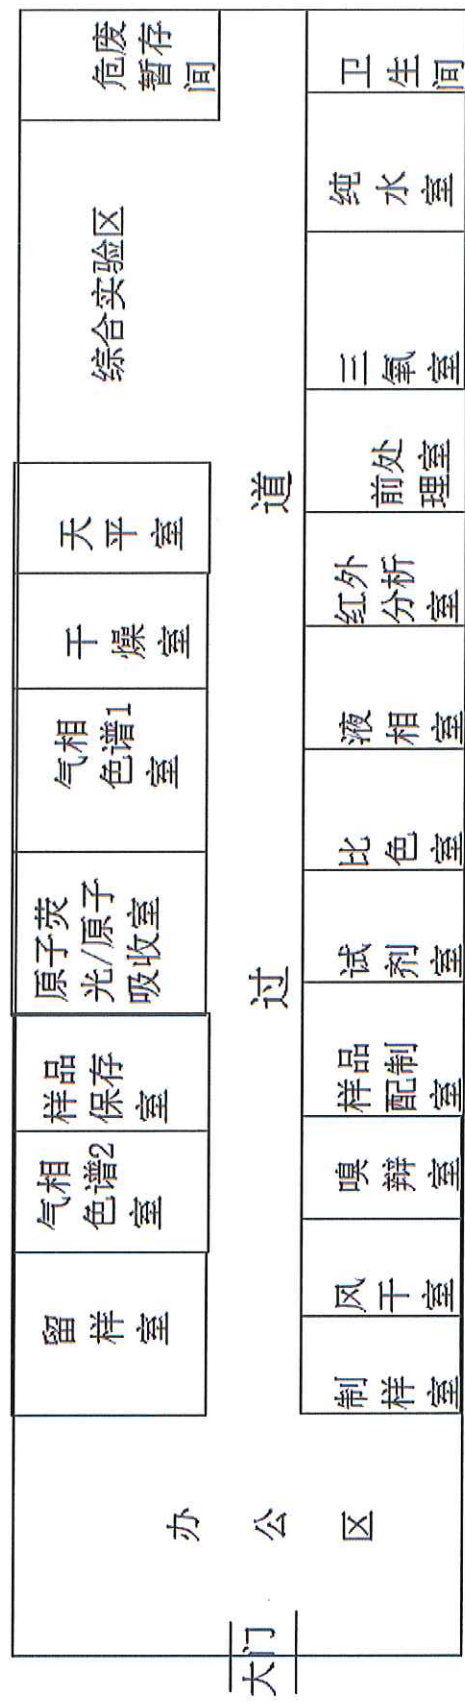 大门
办公区
留样室
气相
色谱2
室
样品
保存
室
原子荧
光/原子
吸收室
气相
色谱1
室
干燥室
天平室
综合实验区
危废
暂存
间
过道
制样室
风干室
嗅辩室
样品
配制
室
试剂室
比色室
液相室
红外
分析
室
前处
理室
三氧室
纯水室
卫生间